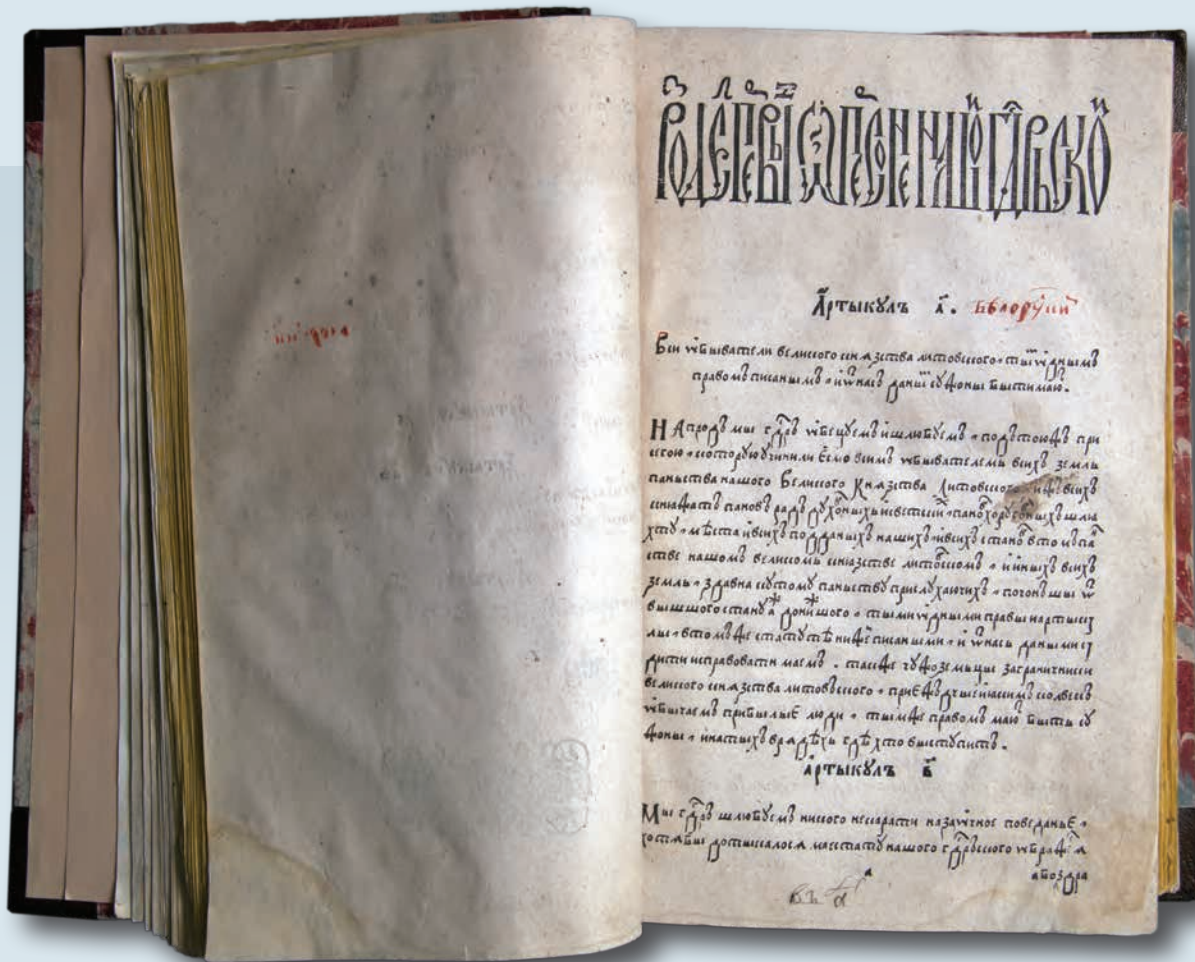 РОЗДЕЛ ПЕРВЫЙ Ѡ ПЕРСОНЕ НАШОЙ ГДРЬСКОЙ
Артыкꙋлъ а҃.
Вси ѡбыватели великого князства литовского тым ѡдным
правомъ писанымъ и ѿ насъ даным сужоны быти маю.
НАпродъ мы гдръ ѡбецуемъ и шлюбуемъ подъ тоюжъ при
сегою которую учинили есмо всимъ ѡбывателемъ всихъ земль
панства нашого Великого Князства Литовского ижъ всихъ
княжат пановъ радъ духовныхъ и свецких панов хоруговныхъ шля
хту мѣста и всихъ подданыхъ нашихъ и всихъ станов в том пан
стве нашомъ великомъ князстве литовскомъ и иныхъ всихъ
земль здавна ку тому панству прислухаючихъ почоншы ѿ
вышшого стану аж до нижшого тыми ѡдными правы и артыку
лы в томже статуте ниже писаными и ѿ насъ даными су
дити и справовати маемъ. также чужоземцы заграничники
великого князства литовъского приеждчые и якимъ колвекъ
ѡбычаемъ прибылые люди тымже правомъ маю быти су
жоны и на тыхъ врядѣхъ гдѣ хто выступитъ.
Артыкꙋлъ в҃
Мы гдръ шлюбуемъ никого не карати на заѡчное поведанье
хотябы дотыкалося маестату нашого гдрьского ѡбраженя
а
абы здра